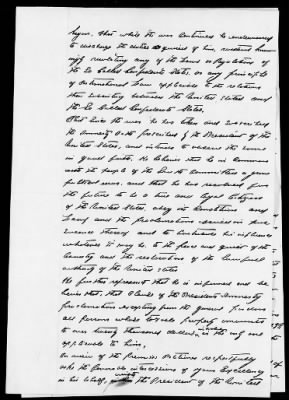 begun, that while he was continued he endeavored
to discharge the duties required of him, without know-
ingly violating any of the Laws or Regulations of
the So Called Confederate States, or any principle
of International Law applicable to the relations
then existing between the United States and
the So Called Confederate States.
That since the war he has taken and subscribed
the Amnesty Oath prescribed by the President of the
United States, and intends to observe the same
in good faith. He believes that he in common
with the people of the South Committed a grave
political error, and that he has resolved for
the future to be a true and loyal citizen
of the United States, obey its Constitution and
Laws and the proclamations issued in pur-
suance thereof and to contribute his influence
whatever it may be, to the peace and quiet of the
Country and the restoration of the lawful
authority of the United States
He further represents that he is informed and be-
lieves that, that Clause of the President's Amnesty
proclamation excepting from the general provisions
all persons whose taxable property amounted
to over twenty thousand dollars, is the only one
applicable to him,
In view of the premises petitioner respectfully
asks the favorable intercession of your Excellency
in his behalf, with the President of the United